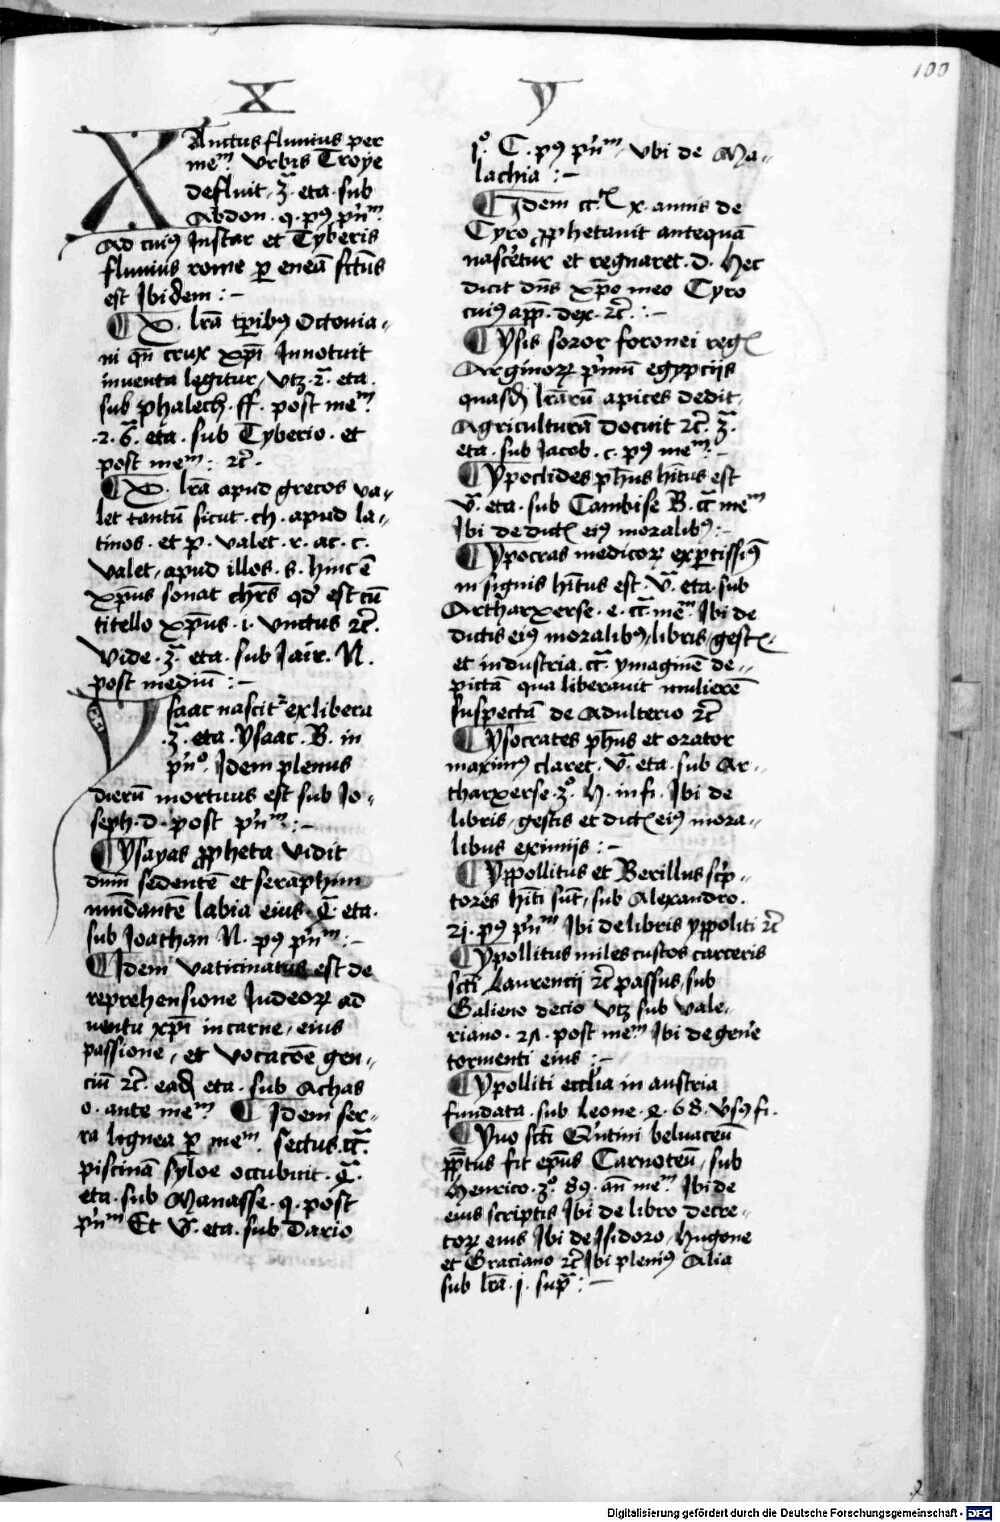 100
x
y
XAnctus fluuius per
meᵐ. vrbis Troye
defluit, 3ᵃ. eta. sub
Abdon. q. pꝰ pn̄ᵐ.
Ad cuiꝰ Instar et Tyberis
fluuius rome ꝑ eneā fctūs
est Ibidem :-
¶ X. lr̄a tꝑibꝰ Octouia-
ni qn̄ crux xp̄i Innotuit
inuenta legitur, vtz. 2ᵃ. eta.
sub phalech. ff. post meᵐ.
.2. 6ᵃ. eta. sub Tyberio. et
post meᵐ: ⁊c̄.
¶ X. lr̄a apud grecos va-
let tantū sicut. ch. apud la-
tinos. et p. valet. r. ac. c.
valet, apud illos. s. hinc ē
xp̄us sonat chr̄s qd̄ est cū
titello xp̄us. i. vnctus ⁊c̄.
Vide. 3ᵃ. eta. sub Iair. N.
post mediū :-
Ysaac nascitᷣ ex libera
.3ᵃ. eta. Ysaac. B. in
pn̄º. Idem plenus
dierū mortuus est sub Io-
seph. d. post pn̄ᵐ :-
¶ Ysayas ꝓpheta vidit
dnm̄ sedentē et seraphim
mūdantē labia eius. 4ᵃ eta.
sub Ioathan N. pꝰ pn̄ᵐ :-
¶ Idem vaticinatus est de
reprehensione Iudeoꝝ ad
uentu xp̄i in carne, eius
passione, et vocacōe gen-
ciū ⁊c̄. ead̄ eta. sub Achas
o. ante meᵐ ¶ Idem ser-
ra lignea ꝑ meᵐ. sectus. cᵃ.
piscinā syloe occubuit. 4ᵃ.
eta. sub Manasse. q. post
pn̄ᵐ Et 5ᵃ. eta. sub Dario
jº. C. pꝰ pn̄ᵐ, vbi de Ma-
lachia :-
¶ Idem x. annis de
Tyro ꝓphetauit antequā
nascetur et regnaret. d. Hec
dicit dn̄s xp̄o meo Cyro
cuiꝰ app. dex. ⁊c̄. :-
¶ Ysis soror foronei regꝭ
Arginoꝝ pͥmū egypcijs
quasd̄ lr̄arū apices dedit,
Agriculturā docuit ⁊c̄. 3ᵃ.
eta. sub Iacob. c. pꝰ meᵐ :-
¶ Ypoclides ph̄us hītus est
5ᵃ. eta. sub Cambise B. cᵃ meᵐ
Ibi de dictꝭ eiꝰ moralibꝰ :-
¶ Ypocras medicoꝝ exꝑtissiꝰ
in signis hītus est. 5ᵃ. eta. sub
Artharxerse. e. cᵃ. meᵐ. Ibi de
dictis eiꝰ moralibꝰ, libris, gestꝭ.
et industria. cᵃ. ymaginē de-
pictā qua liberauit mulierē
suspectā de Adulterio ⁊c̄
¶ Ysocrates ph̄us et orator
maximꝰ claret. 5ᵃ. eta. sub Ar-
tharxerse. 3º. H. in fi. Ibi de
libris, gestis et dictꝭ eiꝰ mora-
libus eximijs :-
¶ Yppollitus et Berillus scͥp-
tores hīti sūt, sub Alexandro.
21. pꝰ pn̄ᵐ Ibi de libris yppoliti ⁊c̄
¶ Ypollitus miles custos carceris
scti Laurencij ⁊c̄ passus, sub
Galieno decio vtz sub vale-
riano. 21. post meᵐ Ibi de gen̄e
tormenti eius :-
¶ Ypolliti eccl̄ia in austria
fundata. sub Leone. 4. 68. v̄sꝰ fi.
¶ Yuo scti Qͥntini beluaceū
pp̄tus fit ep̄us Carnoteū, sub
Henrico. 3º. 89. an̄ meᵐ. Ibi de
eius scriptis Ibi de libro decre-
toꝝ eius Ibi de Isidoro, Hugone
et Graciano ⁊c̄ Ibi pleniꝰ Alia
sub lr̄a. j. supᵃ :-
Digitalisierung gefördert durch die Deutsche Forschungsgemeinschaft - DFG